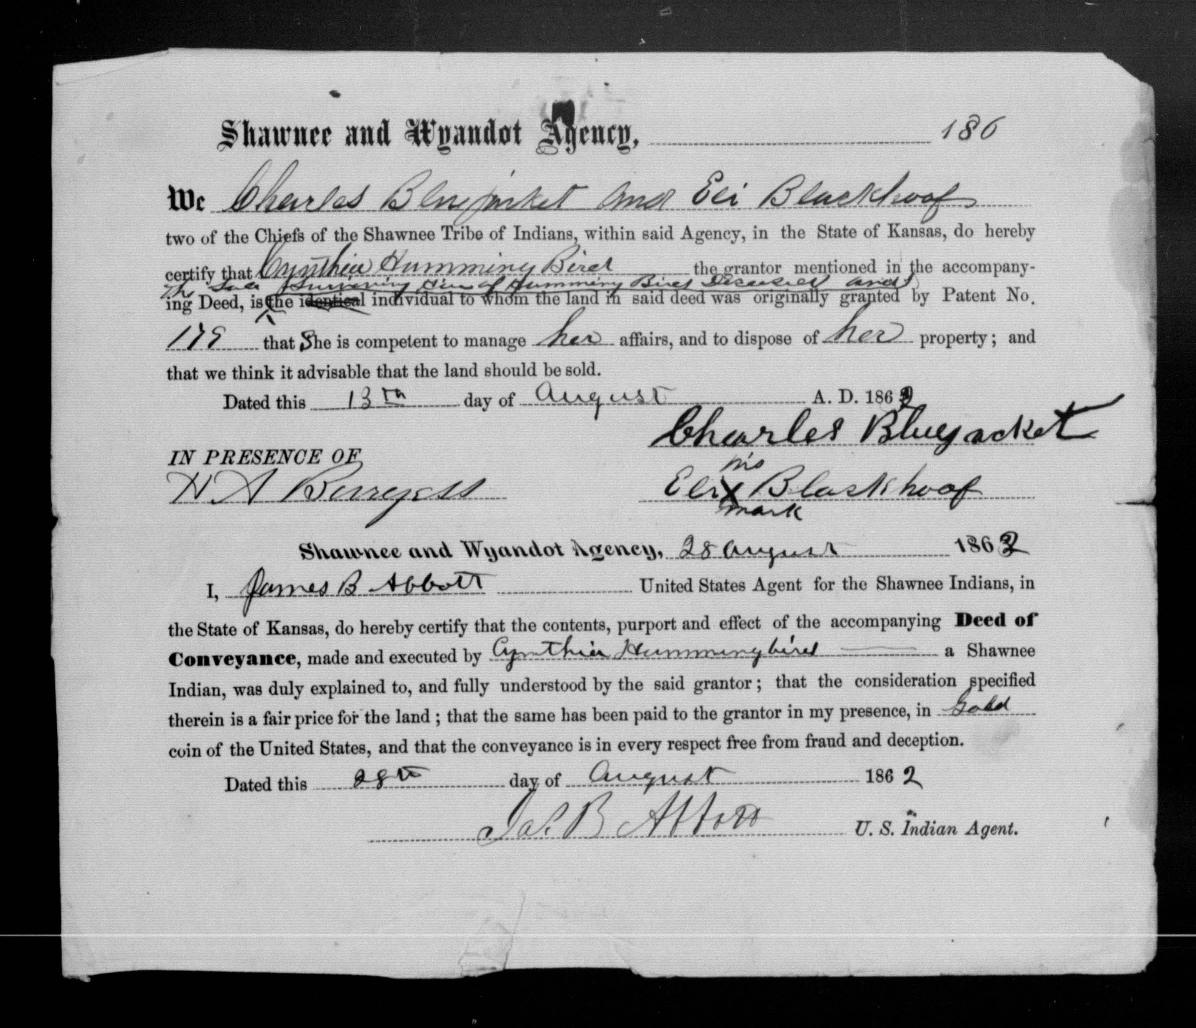 Shawnee and Wyandot Agency, 186
We Charles Bluejacket and Eli Blackhoof
two of the Chiefs of the Shawnee Tribe of Indians, within said Agency, in the State of Kansas, do hereby
certify that Cynthia Humming Bird the grantor mentioned in the accompany-
The Sole Surviving Heir of Humming Bird Deceased and
ing Deed, is the identical individual to whom the land in said deed was originally granted by Patent No.
179 that She is competent to manage her affairs, and to dispose of her property; and
that we think it advisable that the land should be sold.
Dated this 13th day of August A. D. 1862
Charles Bluejacket
IN PRESENCE OF
his
H A Burgess Eli X Blackhoof
mark
Shawnee and Wyandot Agency, 28 August 1862
I, James B Abbott United States Agent for the Shawnee Indians, in
the State of Kansas, do hereby certify that the contents, purport and effect of the accompanying Deed of
Conveyance, made and executed by Cynthia Hummingbird a Shawnee
Indian, was duly explained to, and fully understood by the said grantor; that the consideration specified
therein is a fair price for the land; that the same has been paid to the grantor in my presence, in Gold
coin of the United States, and that the conveyance is in every respect free from fraud and deception.
Dated this 28th day of August 1862
Jas. B Abbott U. S. Indian Agent.